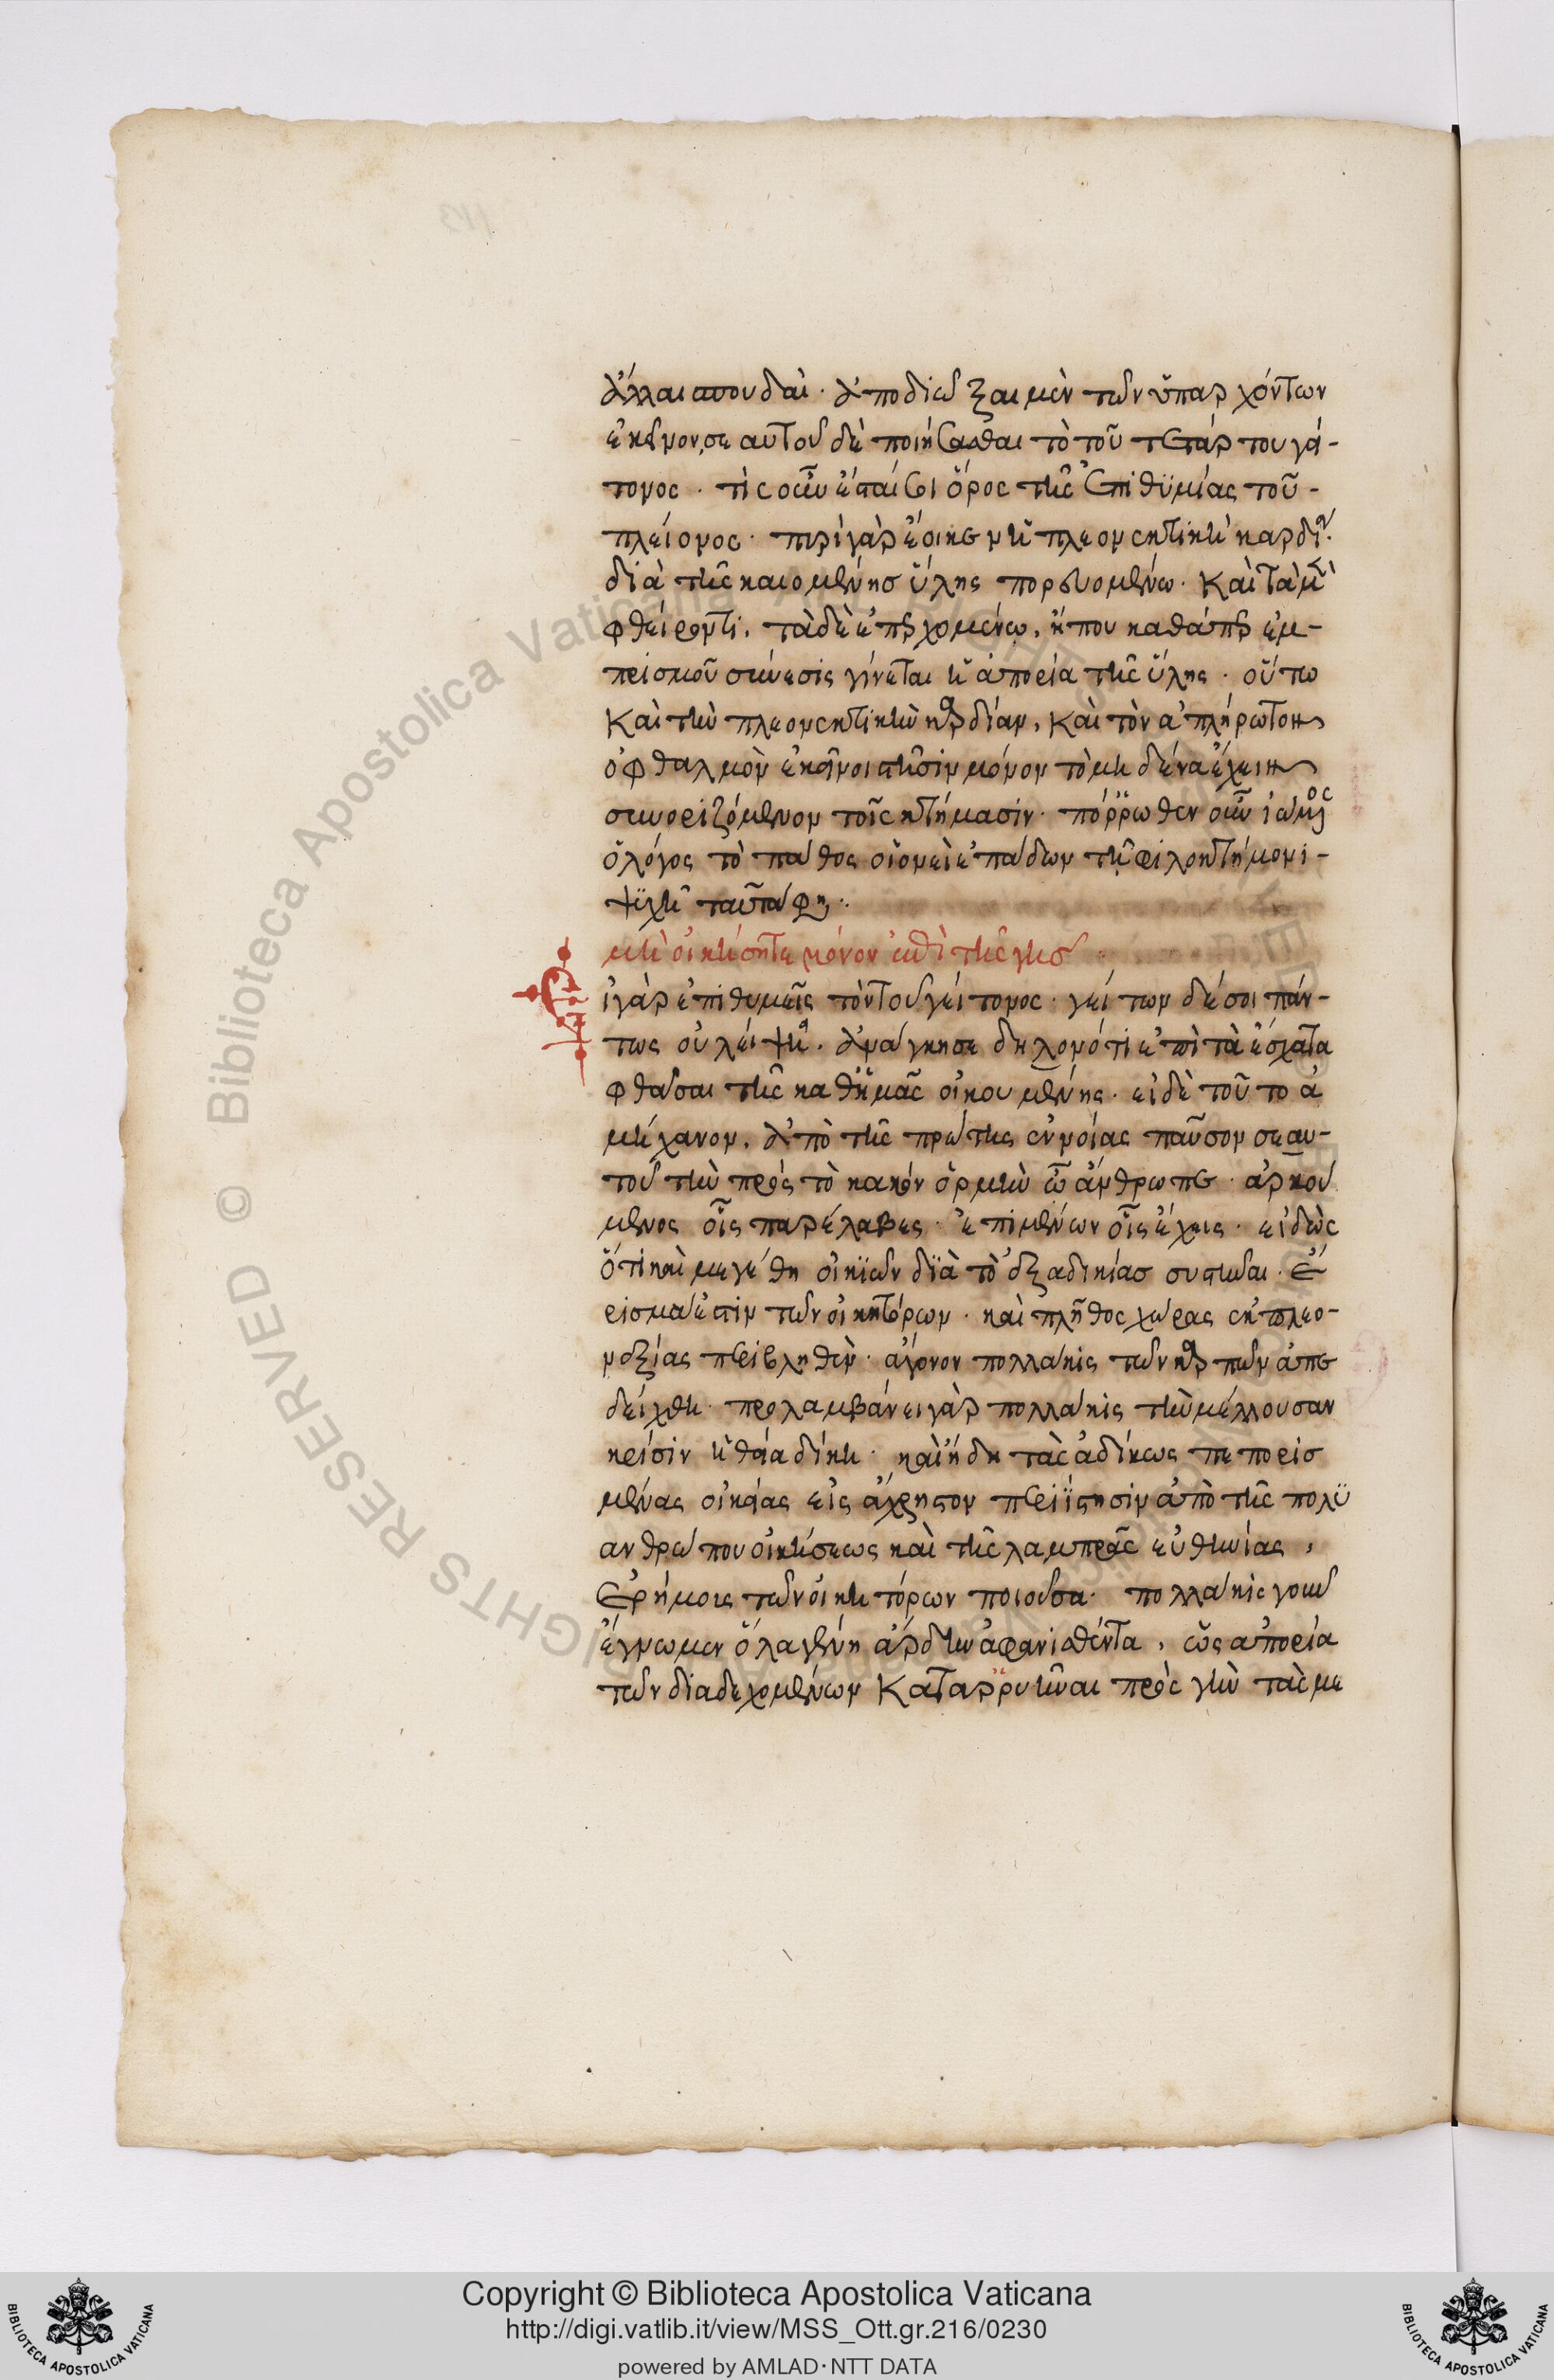 ἄλλαι σπουδαί· ἀποδιῶξαι μὲν τῶν ὑπαρχόντων
ἐκεῖνον, σεαυτοῦ δὲ ποιήσασθαι τὸ τοῦ τετάρτου γεί-
τονος· τίς οὖν ἐστί σοι ὅρος τῆς ἐπιθυμίας τοῦ-
πλείονος· πυρὶ γὰρ ἔοικεν ἡ πλεονεκτικὴ καρδία·
διὰ τῆς καιομένης ὕλης πορευομένω· καὶ τὰ μὲν
φθείροντι, τὰ δὲ ἐπερχομένω, ἤπου καθάπερ ἐμ-
πρισμοῦ σύνεσις γίνεται ἡ ἀπορία τῆς ὕλης· οὕτω
καὶ τὴν πλεονεκτικὴν καρδίαν, καὶ τὸν ἀπλήρωτον
ὀφθαλμὸν ἐκεῖνοι στῆσιν μόνον τὸ μηδένα ἔχειν
συνοριζόμενον τοῖς κτήμασιν· πόρρωθεν οὖν ἰώμενος
ὁ λόγος τὸ πάθος οἱονεὶ ἐπάδων τῆ φιλοκτήμονι-
ψυχῆ ταῦτά φησι·
μὴ οἰκήσητε μόνον ἐπὶ τῆς γῆς
ἰ γὰρ ἐπιθυμεῖς τὸν τοῦ γείτονος· γείτων δέ σοι πάν-
τως οὐ λείψει· ἀνάγκη σε δηλονότι ἐπὶ τὰ ἔσχατα
φθάσαι τῆς καθ' ἡμᾶς οἰκουμένης· εἰ δὲ τοῦτο ἀ
μήχανον, ἀπὸ τῆς πρώτης ἐννοίας παῦσον σεαυ-
τοῦ τὴν πρὸς τὸ κακὸν ὁρμὴν ὦ ἄνθρωπε· ἀρκού
μενος οἷς παρέλαβες· ἐπιμένων οἷς ἔχεις· εἰδὼς
ὅτι καὶ μεγέθη οἰκιῶν διὰ τὸ ἐξ ἀδικίας συστῆναι· ἔ
ρισμά ἐστιν τῶν οἰκητόρων· καὶ πλῆθος χώρας ἐκ πλεο-
νεξίας περιβληθὲν· ἄγονον πολλάκις τῶν καρπῶν ἀπε
δείχθη· προλαμβάνει γὰρ πολλάκις τὴν μέλλουσαν
κρίσιν ἡ θεία δίκη· καὶ ἤδη τὰς ἀδίκως πεπορισ
μένας οἰκίας εἰς ἄχρηστον περιίστησιν ἀπὸ τῆς πολυ
ανθρώπου οἰκήσεως καὶ τῆς λαμπρᾶς εὐθηνίας,
ἐρήμοις τῶν οἰκητόρων ποιοῦσα· πολλάκις γοῦν
ἔγνωμεν ὅλα γένη ἄρδην ἀφανισθέντα, ὡς ἀπορία
τῶν διαδεχομένων καταρρυῆναι πρὸς γῆν τὰς με
Copyright © Biblioteca Apostolica Vaticana
http://digi.vatlib.it/view/MSS_Ott.gr.216/0230
powered by AMLAD·NTT DATA